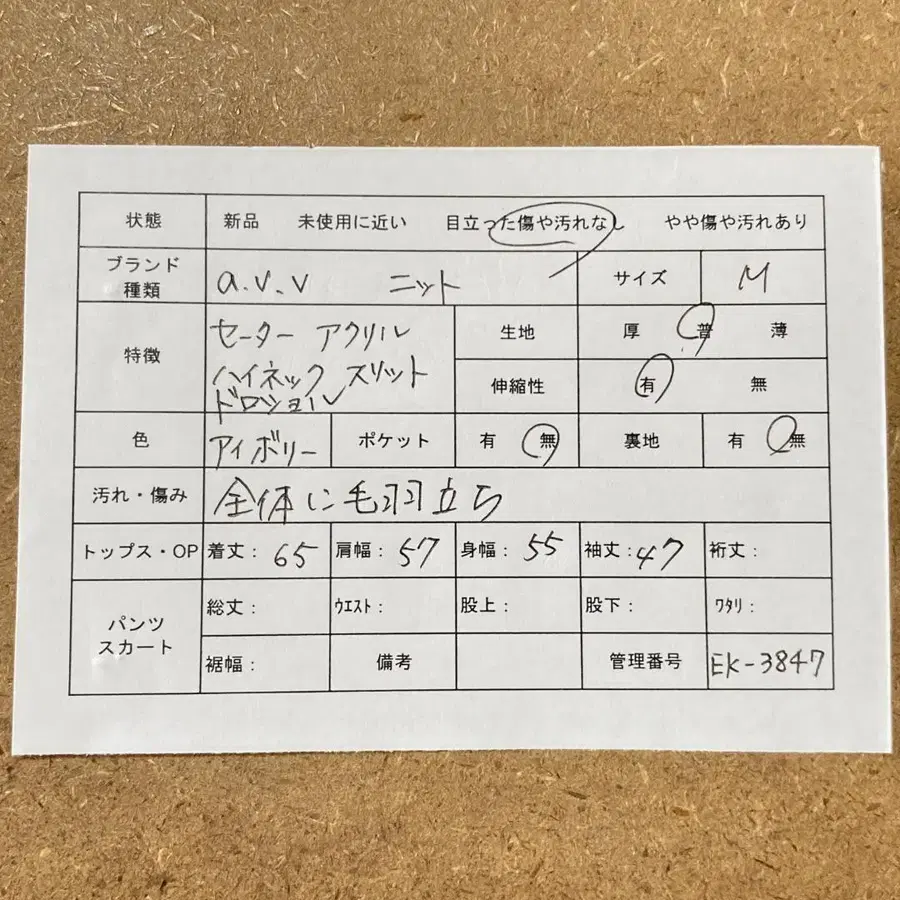 状態 新品 未使用に近い 目立った傷や汚れなし やや傷や汚れあり
ブランド 種類 a.v.v ニット サイズ M
特徴 セーター アクリル 生地 厚 普 薄
ハイネック スリット 伸縮性 有 無
ドロショル
色 アイボリー ポケット 有 無 裏地 有 無
汚れ・傷み 全体に毛羽立ち
トップス・OP 着丈: 65 肩幅: 57 身幅: 55 袖丈: 47 裄丈:
パンツ スカート 総丈: ウエスト: 股上: 股下: ワタリ:
裾幅: 備考 管理番号 EK-3847